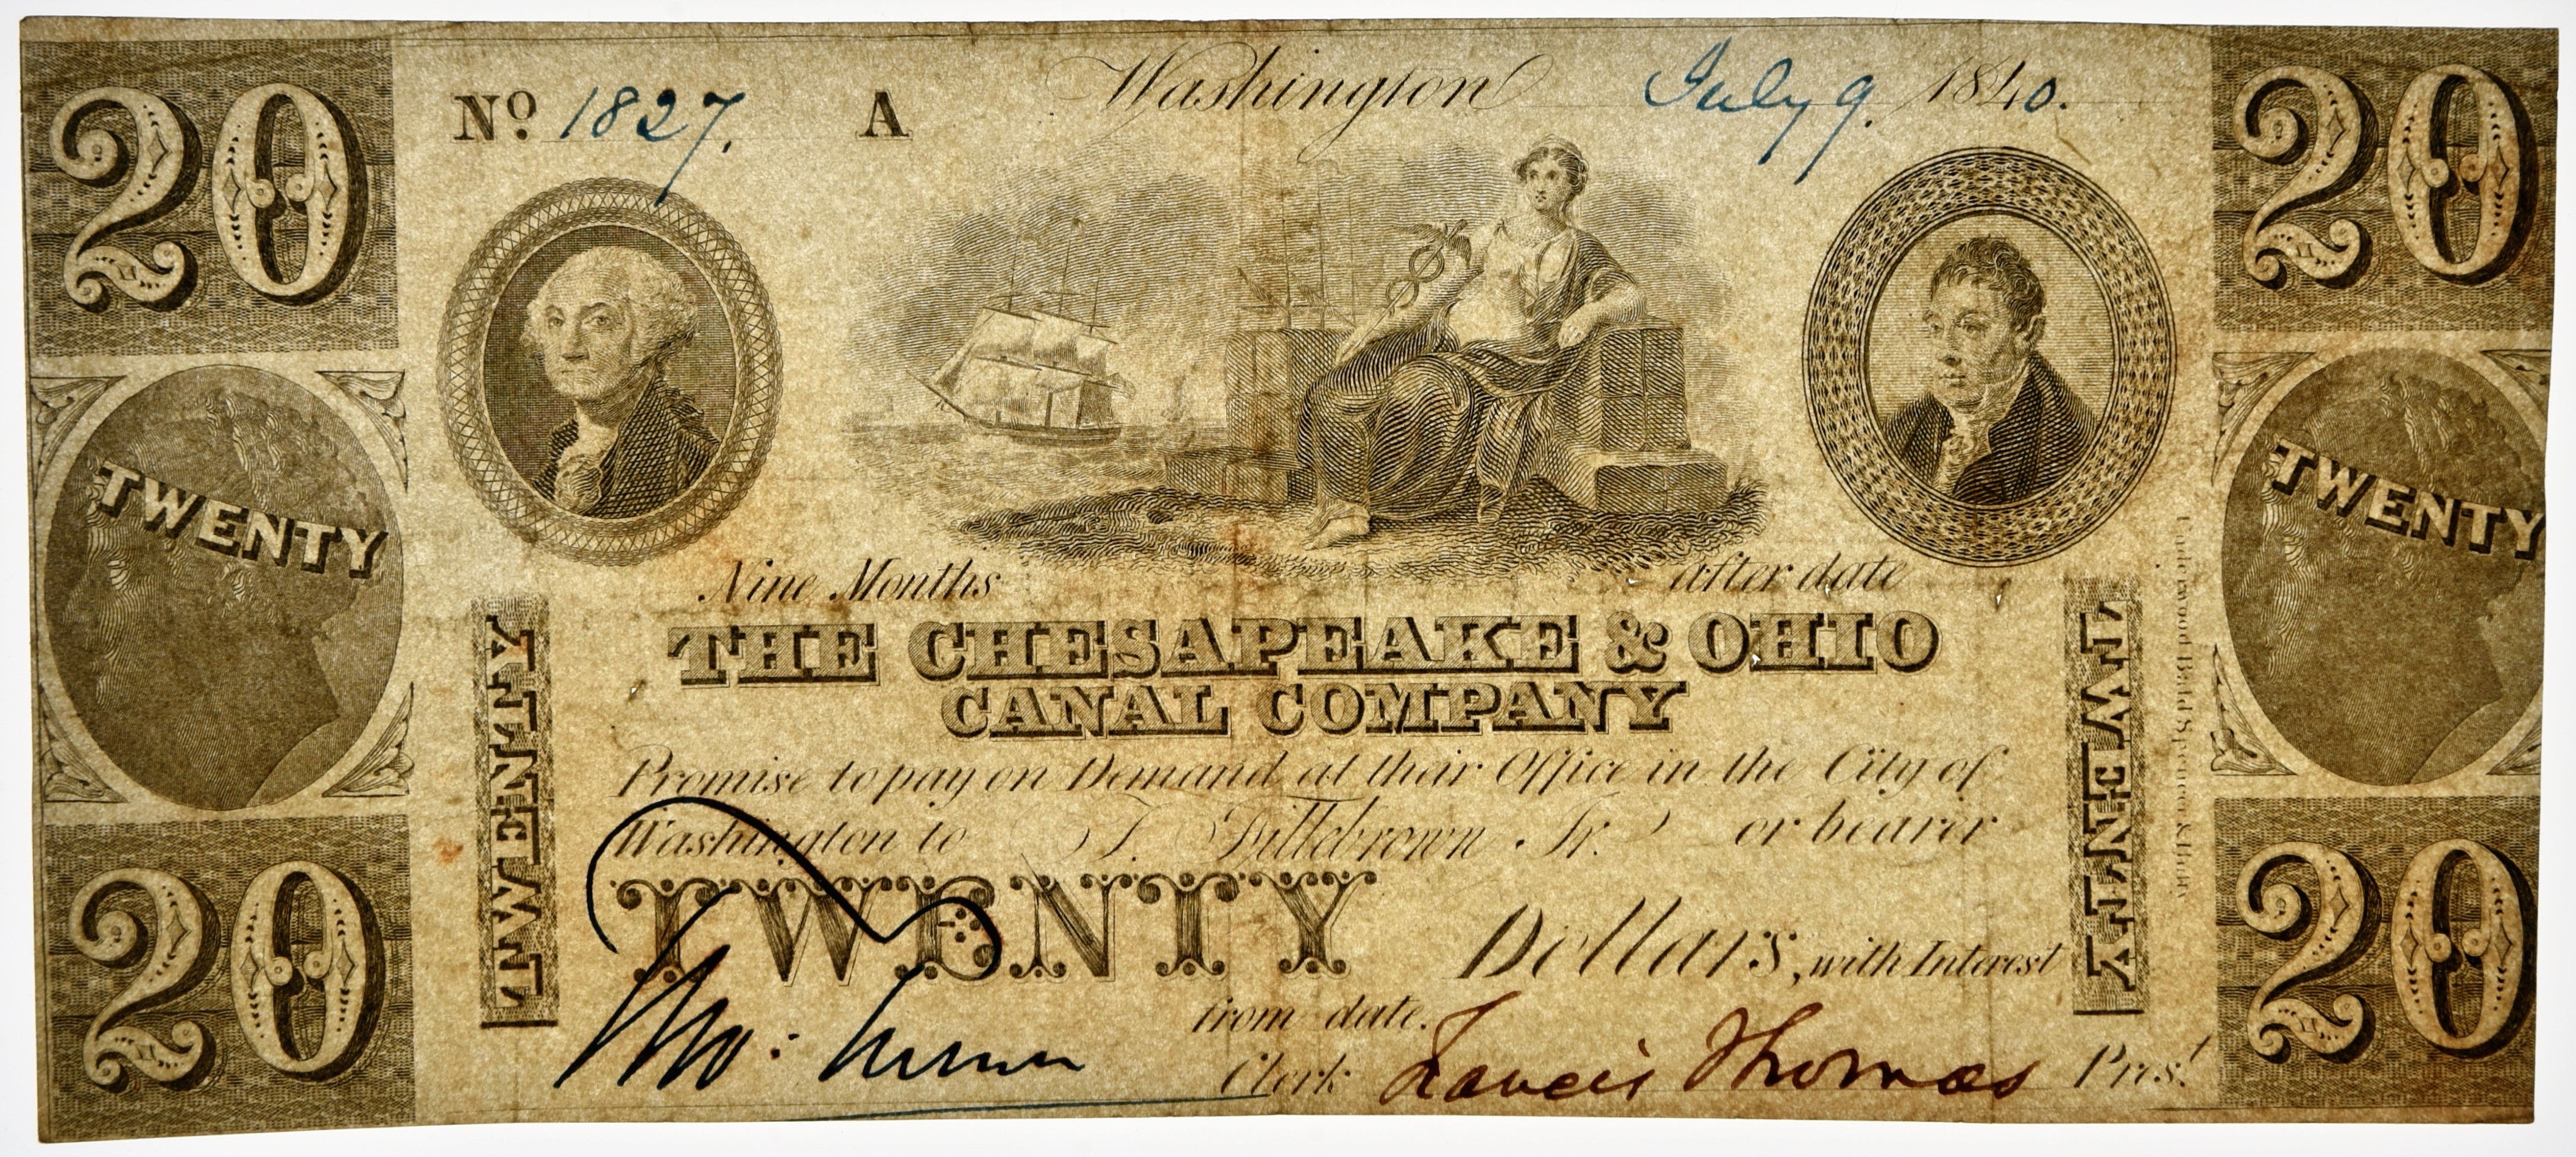 20
20
No. 1827. A Washington July 9. 1840.
TWENTY
TWENTY
Nine Months after date
THE CHESAPEAKE & OHIO
CANAL COMPANY
TWENTY
TWENTY
Promise to pay on Demand at their Office in the City of
Washington to T. Fillebrown Jr. or bearer
TWENTY Dollars, with Interest
from date.
Clerk Francis Thomas Prest.
20
20
Underwood Bald Spencer & Hufty